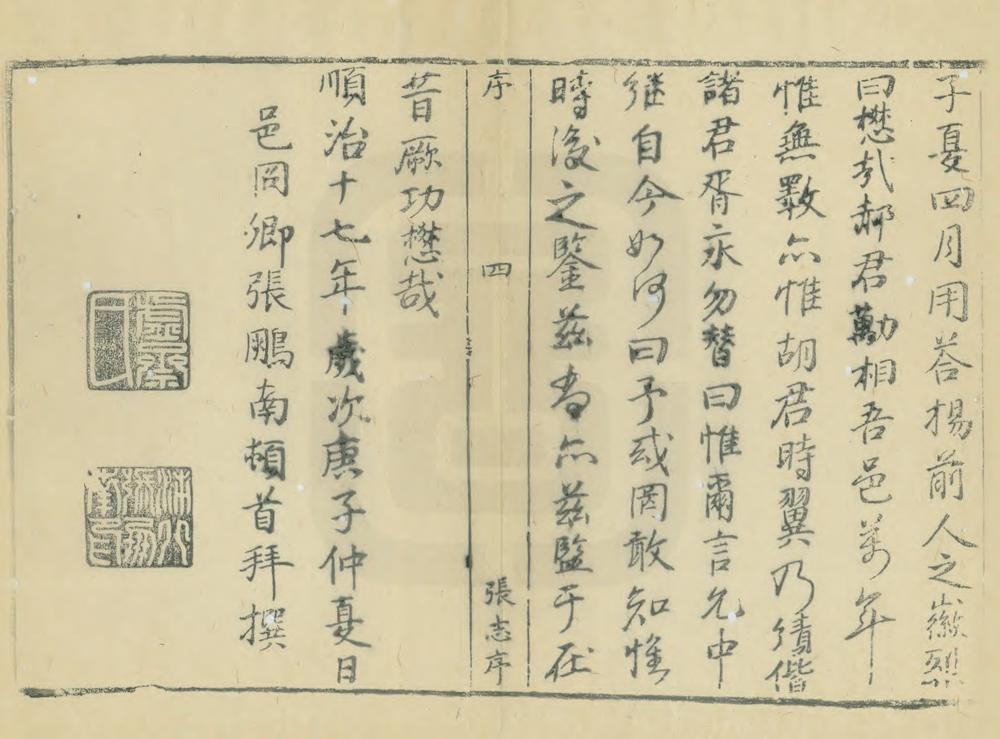 子夏四月用答揚前人之徽
曰懋哉郝君勷相吾邑萬年
惟無斁亦惟胡君時翼乃績偕
諸君胥永勿替曰惟爾言允中
继自今如何曰予或罔敢知惟
時後之鑒兹者亦兹監于在
昔厥功懋哉
順治十七年歲次庚子仲夏日
邑岡卿張鵬南頓首拜撰
序
四
張志序